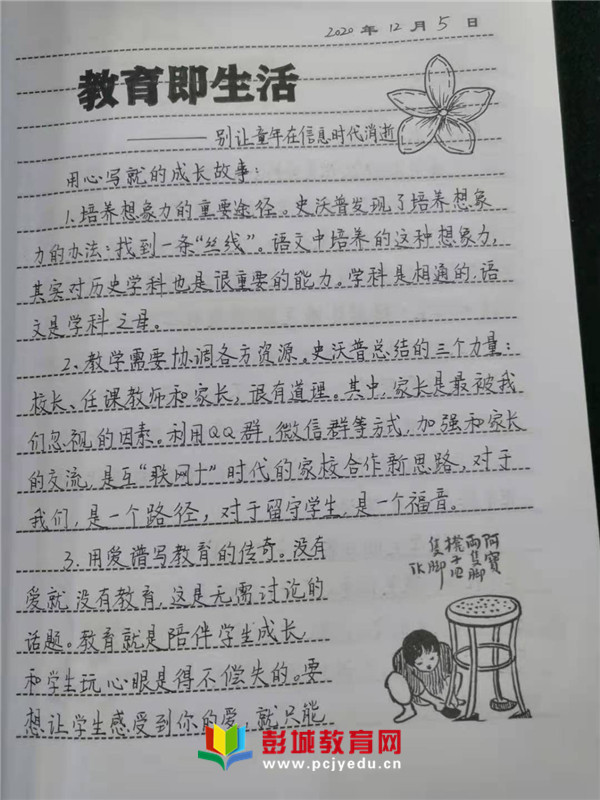 2020年12月5日
教育即生活
——别让童年在信息时代消逝
用心写就的成长故事：
1.培养想象力的重要途径。史沃普发现了培养想象
力的办法：找到一条“丝线”。语文中培养的这种想象力，
其实对历史学科也是很重要的能力。学科是相通的，语
文是学科之母。
2、教学需要协调各方资源。史沃普总结的三个力量：
校长、任课教师和家长，很有道理。其中，家长是最被我
们忽视的因素。利用QQ群、微信群等方式，加强和家长
的交流，是互“联网十”时代的家校合作新思路，对于
我们，是一个路径，对于留守学生，是一个福音。
3、用爱谱写教育的传奇。没有
爱就没有教育，这是无需讨论的
话题。教育就是陪伴学生成长，
和学生玩心眼是得不偿失的。要
想让学生感受到你的爱，就只能
阿寶
兩隻腳
凳子四
隻腳
彭城教育网
www.pcjyedu.cn